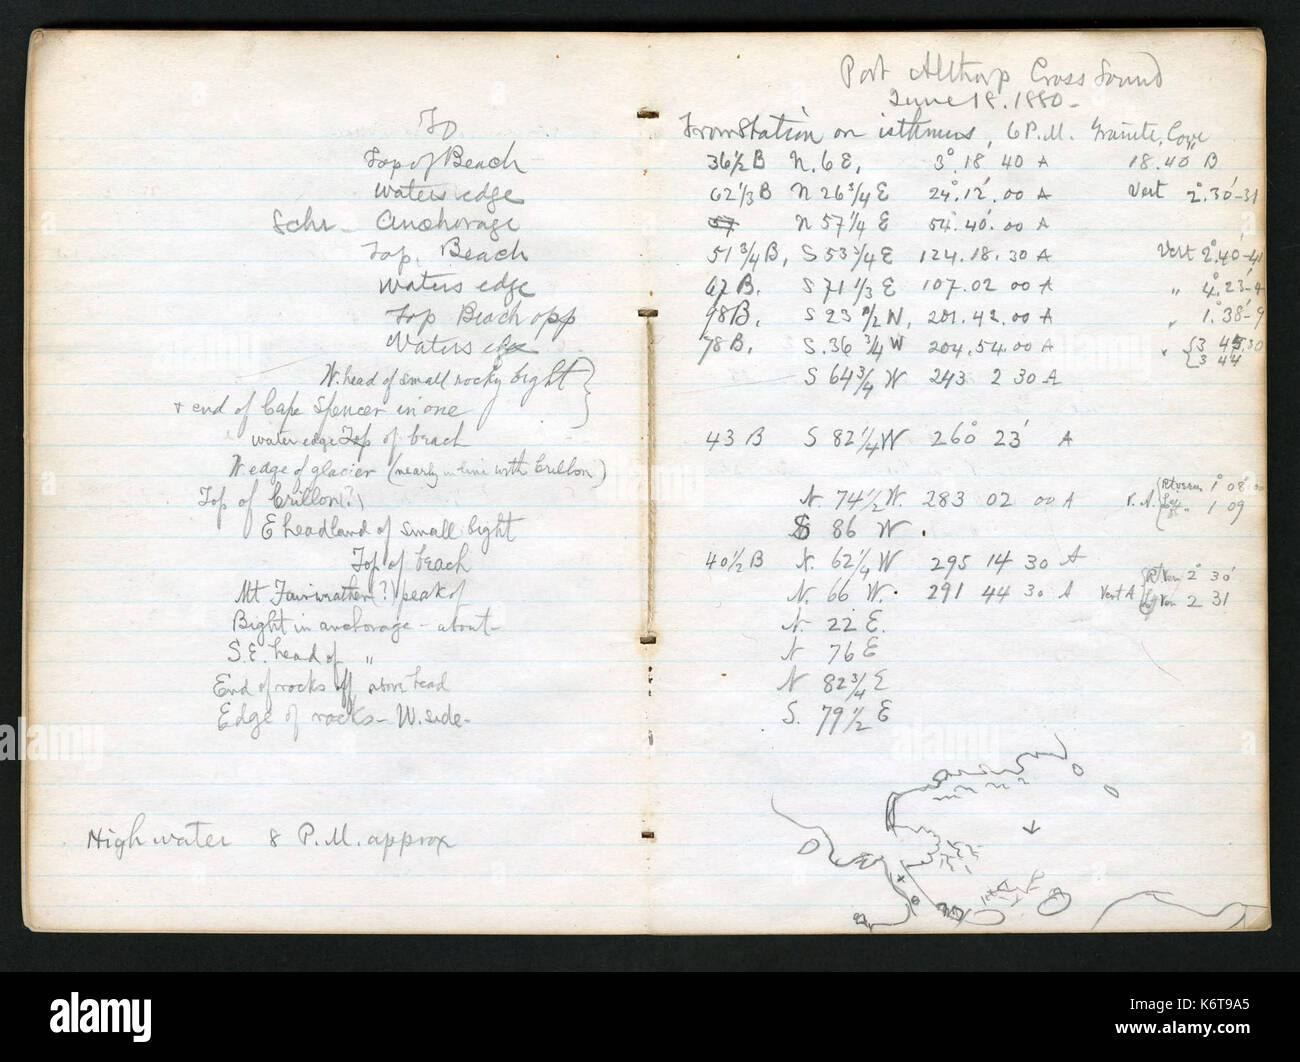 To
Top of Beach
Waters edge
Schr - Anchorage
Top. Beach
Waters edge
Top Beach opp
Waters edge
W. head of small rocky bight
+ end of Cape Spencer in one
water edge Top of beach
W edge of glacier (nearly in line with Crillon)
Top of Crillon (?)
E headland of small bight
Top of beach
Mt Fairweather (?) peak of
Bight in anchorage - about -
S.E. head of "
End of rocks off above head
Edge of rocks - W. side -
High water 8 P.M. approx
Port Althorp Cross Sound
June 18. 1880 -
From Station on isthmus, 6 P.M. Granite Cove
36½ B N. 6 E, 3° 18 40 A 18.40 B
62⅓ B N 26¾ E 24°. 12'. 00 A Vert 2°. 30'-31
N 57¼ E 54. 40'. 00 A
51¾ B, S 53¾ E 124. 18. 30 A Vert 2°. 40'-41
67 B. S 71⅓ E 107. 02 00 A " 4°. 23'-
98 B, S 23 ½ W, 201. 42. 00 A " 1°. 38'-9
78 B. S. 36 ¾ W 204. 54. 00 A " {3 45.30
3 44
S 64¾ W 243 2 30 A
43 B S 82¼ W 260° 23' A
N. 74½ W. 283 02 00 A V. A 1° 08'
1 09
S 86 W.
40½ B N. 62¼ W 295 14 30 A
N. 66 W. 291 44 30 A Vert A {R Ver 2° 30'
Ver 2 31
N. 22 E.
N 76 E
N 82¾ E
S. 79½ E
alamy
alamy
alamy
alamy
Image ID: K6T9A5
www.alamy.com